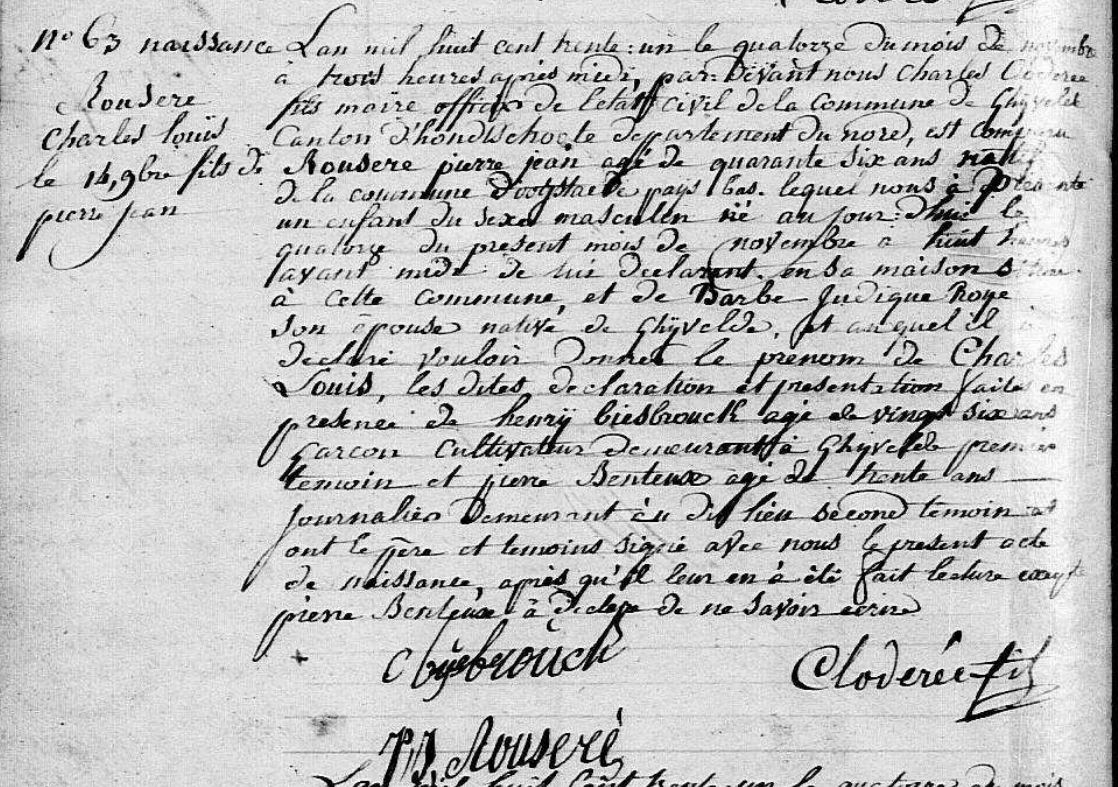 n° 63 naissance
Rousere
Charles Louïs
le 14, 9bre fils de
pierre jean
Lan mil huit cent trente: un le quatorze du mois de novembre
à trois heures après midi, par. Devant nous Charles Cloderée
fils maire officier de letat civil de la Commune de Ghÿvelde
Canton d'hondtschoote departement du nord, est comparu
Rousere pierre jean agé de quarante six ans natif
de la commune pays bas. lequel nous à présenté
un enfant du sexe masculin né au jour: dhui le
quatorze du présent mois de novembre a huit heures
avant midi de lui declarant. en sa maison
à cette commune, et de Barbe Judique Roye
son épouse native de Ghÿvelde, et auquel il à
declaré vouloir donner le prenom de Charles
Louis, les dites declaration et presentation faites en
presence de henrÿ biesbrouck agé de vingt six ans
garcon Cultivateur demeurant à Ghyvelde premier
temoin et pierre Benteux agé de trente ans
journalier demeurant éu dit lieu second temoin et
ont le père et temoins signé avec nous le present acte
de naissance, après qu'il leur en à été fait lecture excepté
pierre Benteux à declare de ne savoir ecrire
Cloderée fils
PJ Rouseré
Lan mil huit cent trente un le quatorze du mois